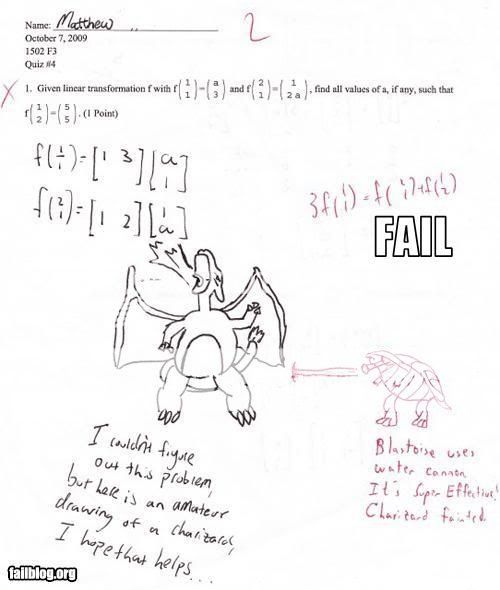 Name: Matthew
2
October 7, 2009
1502 F3
Quiz #4
X 1. Given linear transformation f with f(1 1)=(a 3) and f(2 1)=(1 2a), find all values of a, if any, such that
f(1 2)=(5 5). (1 Point)
f(1 1)=[1 3][a 1]
f(2 1)=[1 2][1 a]
3f(1 1)=f(2 1)+f(1 2)
FAIL
I couldn't figure
out this problem,
but here is an amateur
drawing of a charizard,
I hope that helps...
Blastoise uses
water cannon
It's Super Effective!
Charizard fainted.
failblog.org